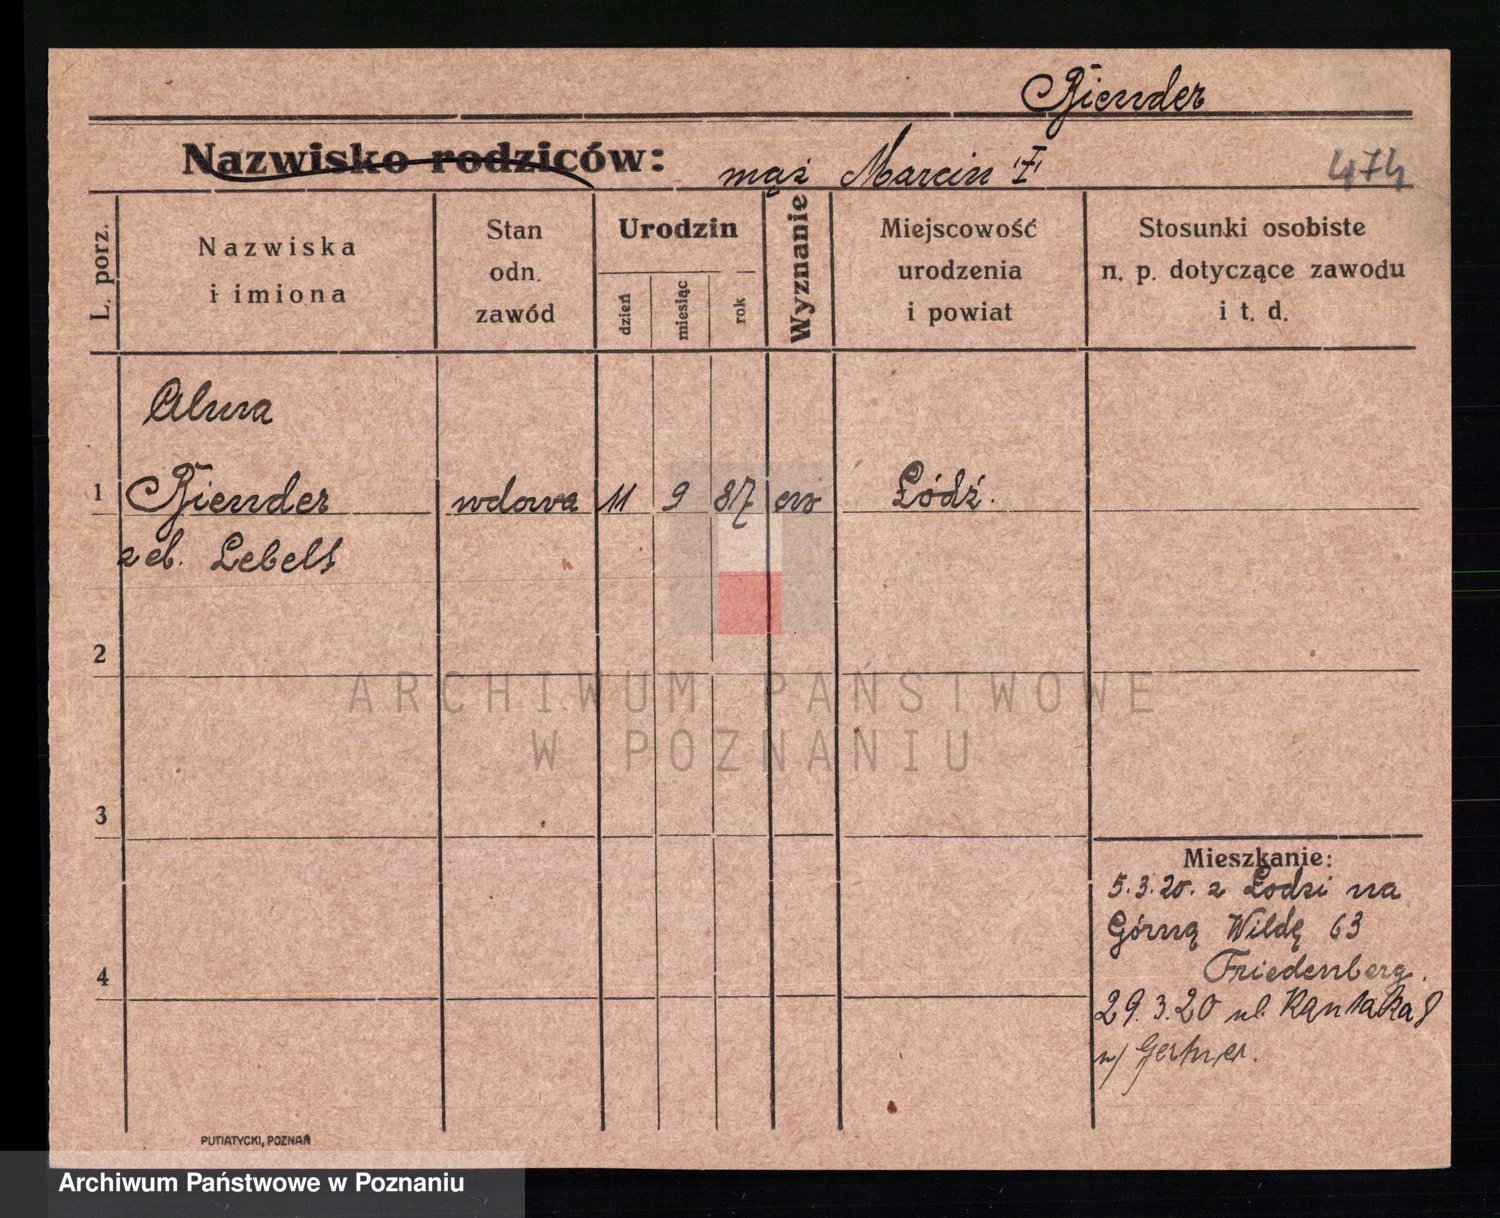 Biender
Nazwisko rodziców: mąż Marcin
474
L. porz.
Nazwiska
i imiona
Stan
odn.
zawód
Urodzin
dzień
miesiąc
rok
Wyznanie
Miejscowość
urodzenia
i powiat
Stosunki osobiste
n. p. dotyczące zawodu
i t. d.
Alma
1 Biender wdowa 11 9 87 ew Łódź.
z d. Lebelt
2
3
4
Mieszkanie:
5.3.20. z Łodzi na
Górną Wildę 63
Friedenberg.
29.3.20 ul. Kantaka 8
ARCHIWUM PAŃSTWOWE
W POZNANIU
PUTIATYCKI, POZNAŃ
Archiwum Państwowe w Poznaniu